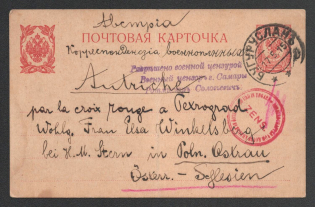 Австрія
ПОЧТОВАЯ КАРТОЧКА
Корреспонденція военноплѣнныхъ
БУГУРУСЛАНЪ
Разрѣшено военной цензурой
Военный цензоръ г. Самары
Autriche
par la croix rouge a Petrograd
Wohlg. Frau Elsa Winkelsberg
bei H. M. Stern in Poln. Ostrau
Österr. - Schlesien